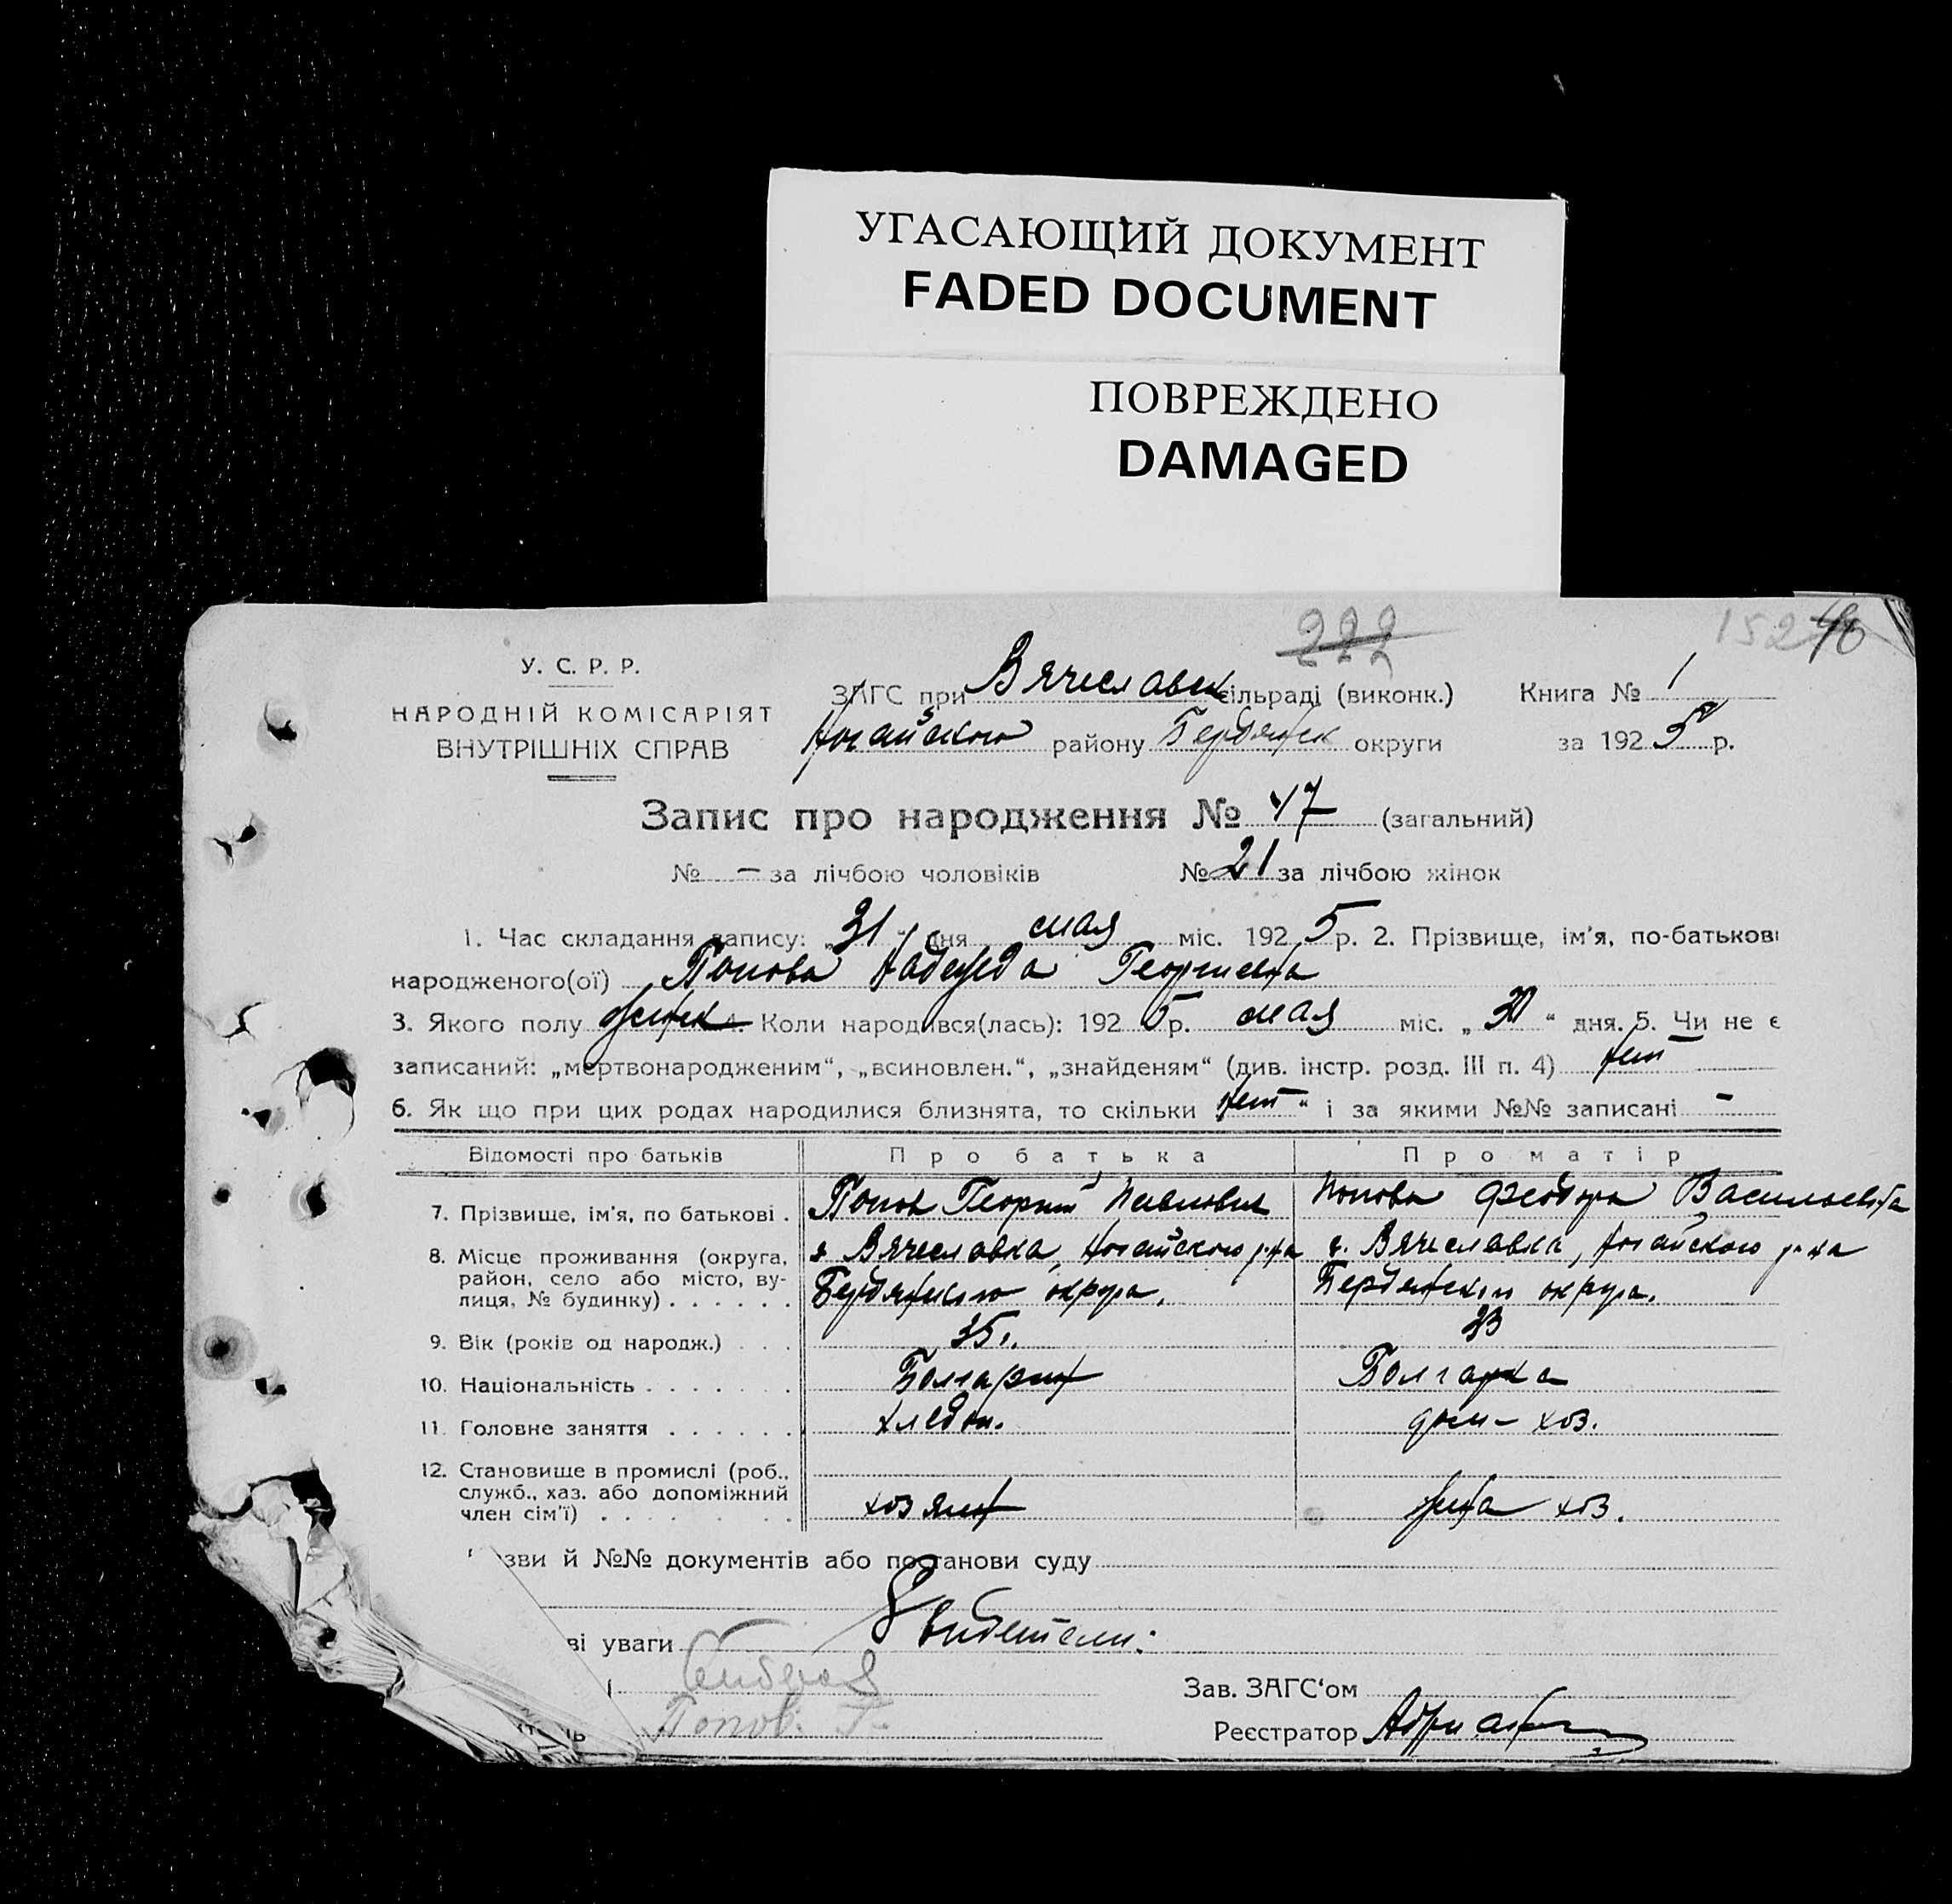 УГАСАЮЩИЙ ДОКУМЕНТ
FADED DOCUMENT
ПОВРЕЖДЕНО
DAMAGED
222
152
У. С. Р. Р.
НАРОДНІЙ КОМІСАРІЯТ
ВНУТРІШНІХ СПРАВ
ЗАГС при Вячеславск сільраді (виконк.)
Ногайского району Бердянск округи
Книга № 1
за 1925 р.
Запис про народження № 47 (загальний)
№ — за лічбою чоловіків № 21 за лічбою жінок
1. Час складання запису: „31“ дня мая міс. 1925 р. 2. Прізвище, ім'я, по-батькові
народженого(ої) Попова Надежда Георгиевна
3. Якого полу женск 4. Коли народився(лась): 1925 р. мая міс. „30“ дня. 5. Чи не є
записаний: „мертвонародженим“, „всиновлен.“, „знайденям“ (див. інстр. розд. III п. 4) нет
6. Як що при цих родах народилися близнята, то скільки нет“ і за якими №№ записані –
Відомості про батьків Про батька Про матір
7. Прізвище, ім'я, по батькові . Попов Георгий Павлович Попова Феодора Васильевна
8. Місце проживання (округа, район, село або місто, вулиця, № будинку) . . . . . .
с. Вячеславка, Ногайского р-на Бердянского округа.
с. Вячеславка, Ногайского р-на Бердянского округа.
9. Вік (років од народж.) . . . 35 г. 33
10. Національність . . . . . . . Болгарин Болгарка
11. Головне заняття . . . . . . хлебоп. дом– хоз.
12. Становище в промислі (роб., служб., хаз. або допоміжний член сім'ї) . . . . . . хозяин жена хоз.
зви й №№ документів або постанови суду
ві уваги Свидетели:
Попов. Г.
Зав. ЗАГС‘ом
Реєстратор